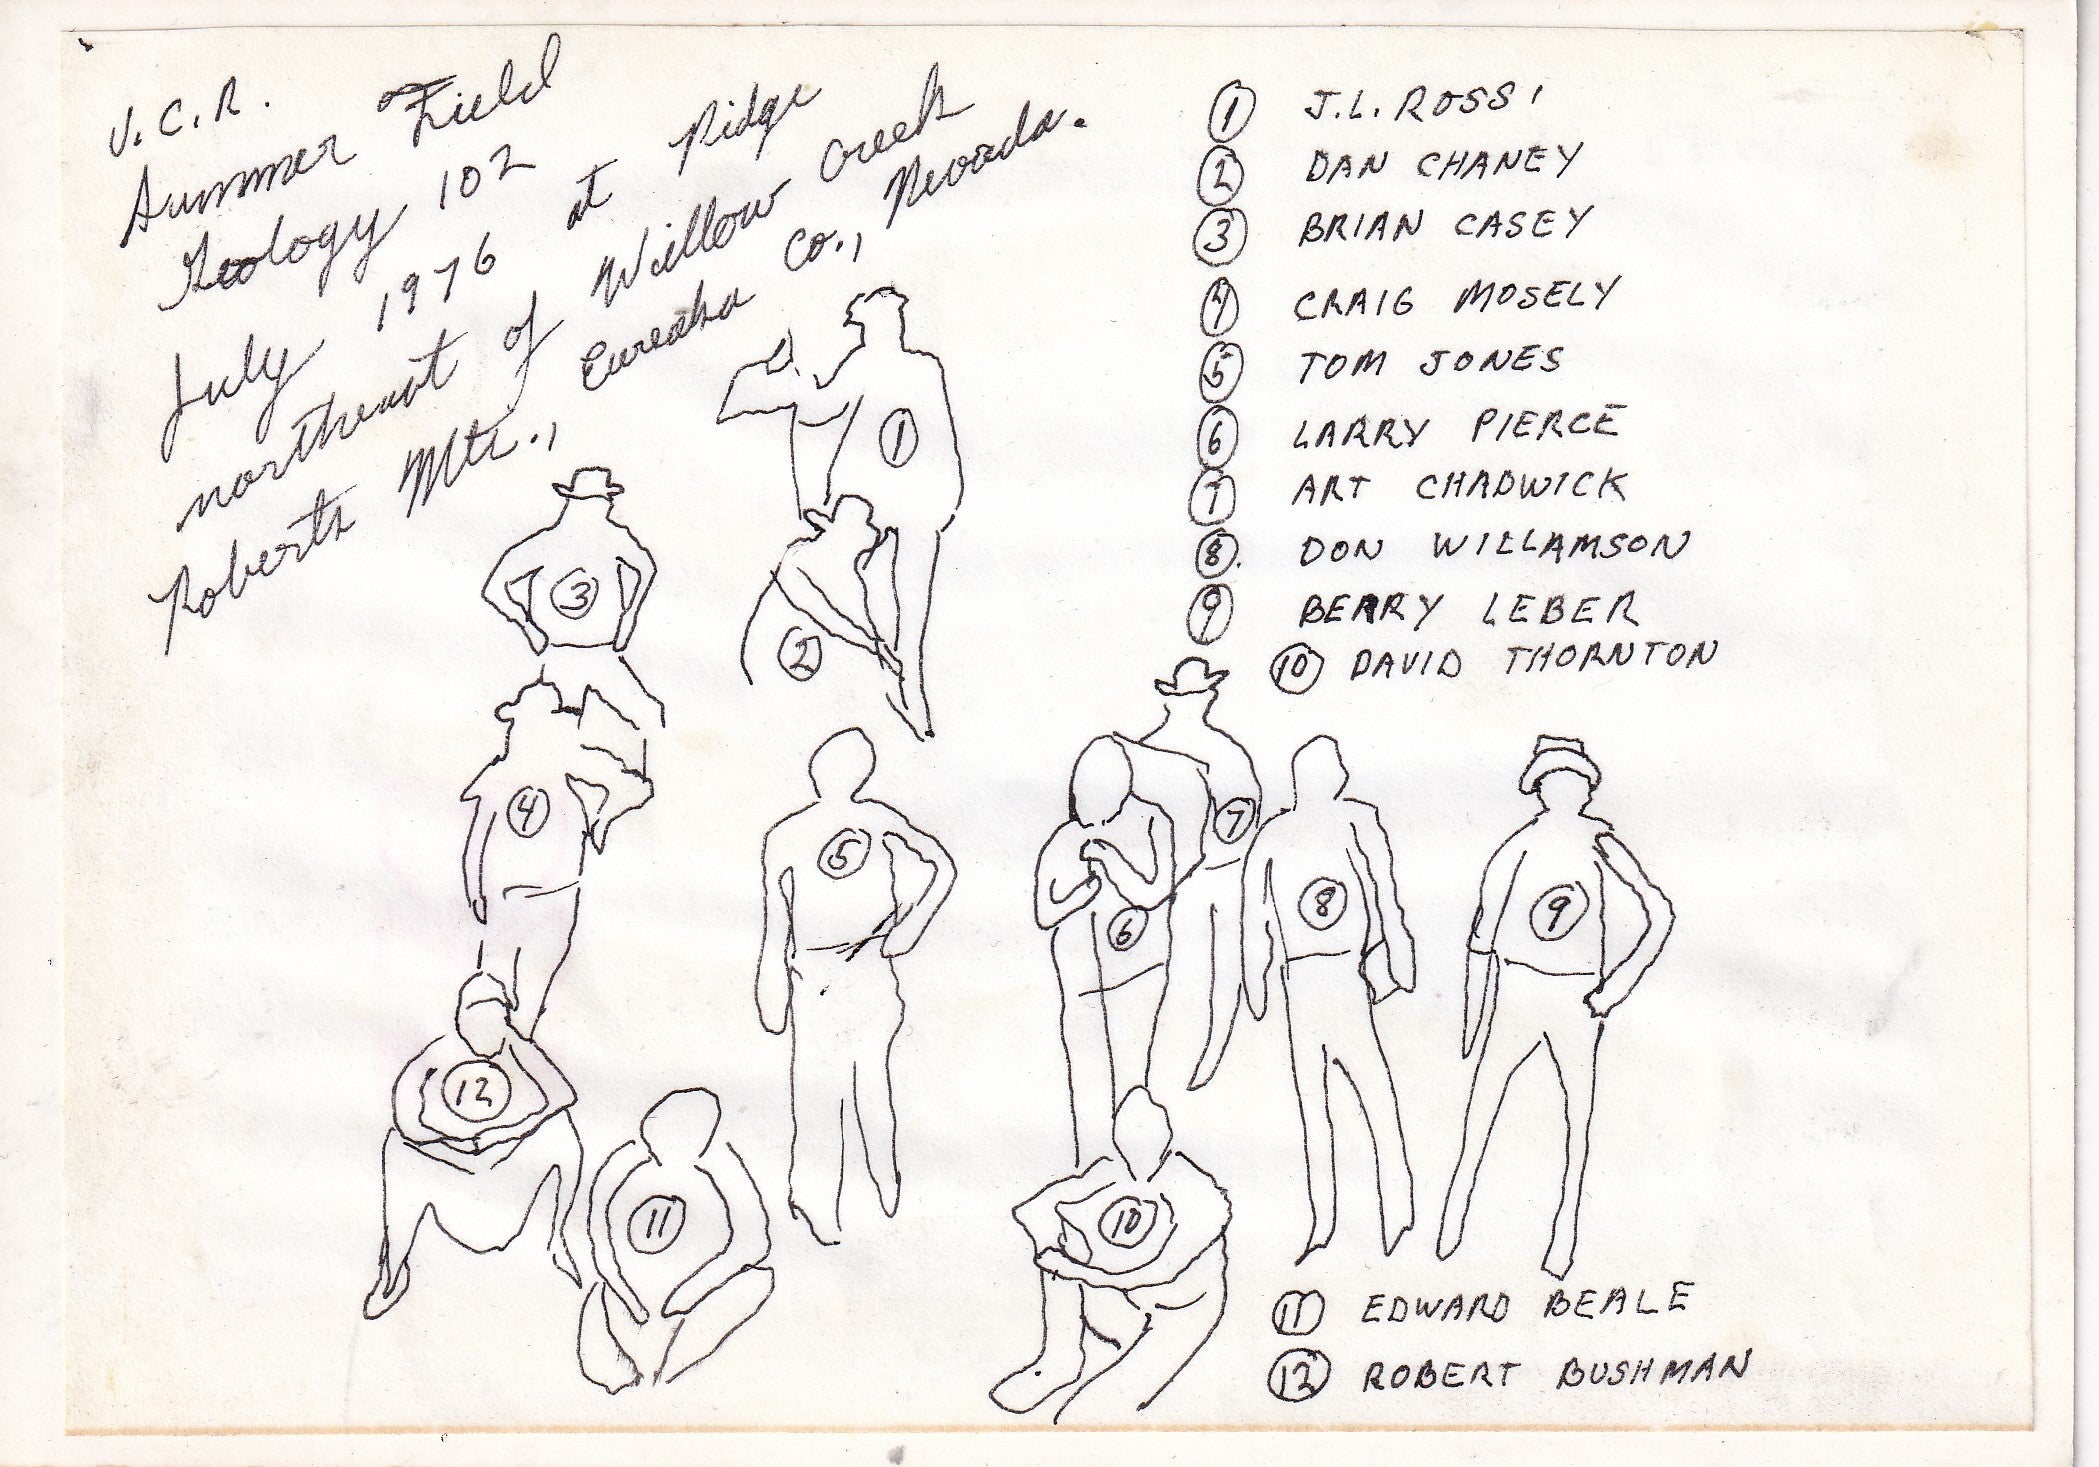 U.C.R.
Summer Field
Geology 102
July 1976 at Ridge
northeast of Willow Creek
Roberts Mts., Eureka Co., Nevada.
① J.L. ROSSI
② DAN CHANEY
③ BRIAN CASEY
④ CRAIG MOSELY
⑤ TOM JONES
⑥ LARRY PIERCE
⑦ ART CHADWICK
⑧. DON WILLAMSON
⑨ BERRY LEBER
⑩ DAVID THORNTON
1
3
2
4
5
7
6
8
9
12
11
10
⑪ EDWARD BEALE
⑫ ROBERT BUSHMAN